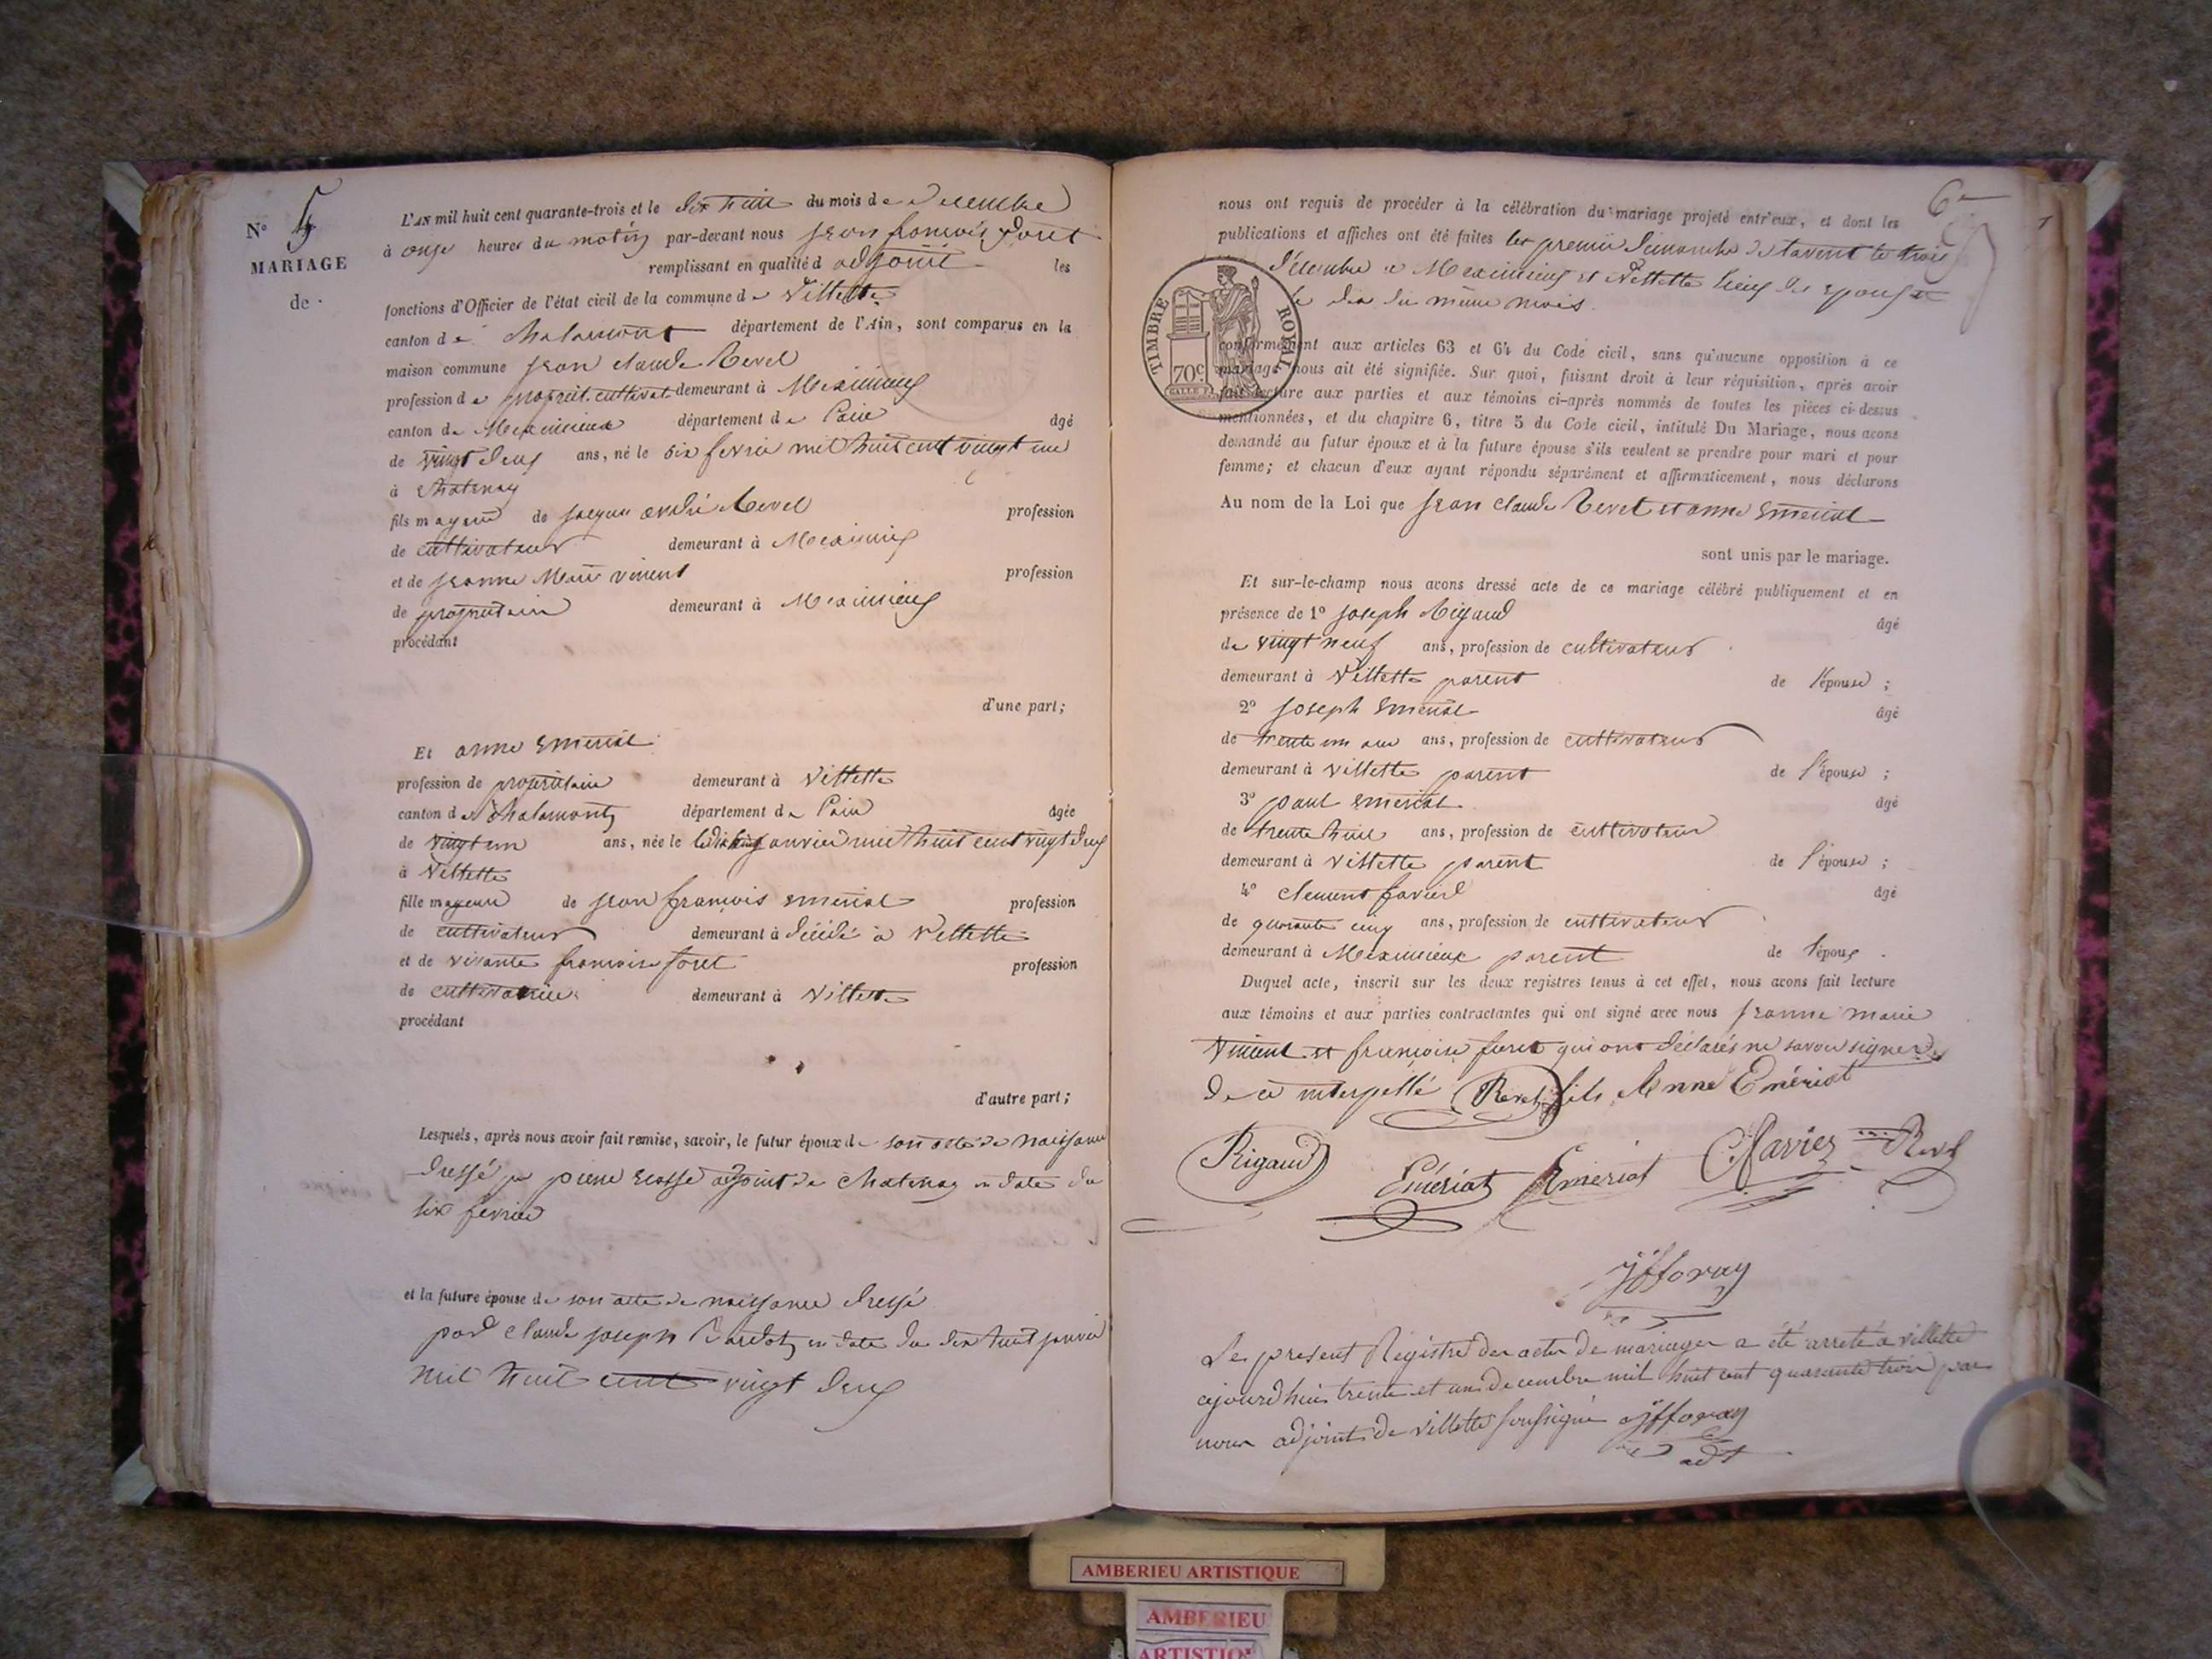 N° 5
MARIAGE
de
L'AN mil huit cent quarante-trois et le dix huit du mois de decembre
à onze heures du matin par-devant nous jean francois foret
remplissant en qualité d adjoint les
fonctions d'Officier de l'état civil de la commune de Villette
canton de Chalamont département de l'Ain, sont comparus en la
maison commune jean claude Revel
profession de propriét. cultivat demeurant à Meximieux
canton de Meximieux département de l'ain âgé
de vingt deux ans, né le six fevrier mil huit cent vingt un
à Chatenay
fils majeur de jacques andré Revel profession
de cultivateur demeurant à Meximieux
et de jeanne Marie vincent profession
de propriétaire demeurant à Meximieux
procédant
d'une part;
Et anne Emeriat
profession de propriétaire demeurant à Villette
canton de Chalamont département de l'ain âgée
de vingt un ans, née le dix huit janvier mil huit cent vingt deux
à Villette
fille majeure de jean françois emeriat profession
de cultivateur demeurant à décédé a Villette
et de vivante francoise foret profession
de cultivatrice demeurant à Villette
procédant
d'autre part;
Lesquels, après nous avoir fait remise, savoir, le futur époux de son acte de naissance
dressé par pierre adjoint de Chatenay en date du
six fevrier
et la future épouse de son acte de naissance dressé
par claude joseph en date du dix huit janvier
mil huit cent vingt deux
6e
nous ont requis de procéder à la célébration du mariage projeté entr'eux, et dont les
publications et affiches ont été faites les premier dimanche de l'avent le trois
décembre a Meximieux et Villette lieux des epoux et
le dix du même mois.
TIMBRE ROYAL
70c
conformément aux articles 63 et 64 du Code civil, sans qu'aucune opposition à ce
mariage nous ait été signifiée. Sur quoi, faisant droit à leur réquisition, après avoir
fait lecture aux parties et aux témoins ci-après nommés de toutes les pièces ci-dessus
mentionnées, et du chapitre 6, titre 5 du Code civil, intitulé Du Mariage, nous avons
demandé au futur époux et à la future épouse s'ils veulent se prendre pour mari et pour
femme; et chacun d'eux ayant répondu séparément et affirmativement, nous déclarons
Au nom de la Loi que jean claude Revel et anne Emeriat
sont unis par le mariage.
Et sur-le-champ nous avons dressé acte de ce mariage célébré publiquement et en
présence de 1° joseph Rigaud âgé
de vingt neuf ans, profession de cultivateur
demeurant à Villette parent de l'épouse ;
2° joseph Emeriat âgé
de trente un ans ans, profession de cultivateur
demeurant à Villette parent de l'épouse ;
3° paul emeriat âgé
de trente huit ans, profession de cultivateur
demeurant à Villette parent de l'épouse ;
4° clement favier âgé
de quarante cinq ans, profession de cultivateur
demeurant à Meximieux parent de l'époux .
Duquel acte, inscrit sur les deux registres tenus à cet effet, nous avons fait lecture
aux témoins et aux parties contractantes qui ont signé avec nous jeanne marie
vincent et francoise foret qui ont déclarés ne savoir signer
de ce interpellé Revel fils Anne Emériat
Rigaud Emériat Emeriat C. favier Revel
jf foray
Le present Registre des actes de mariages a été arreté a villette
aujourd'hui trente et un decembre mil huit cent quarante trois par
nous adjoint de villette soussigné jf foray
adt
AMBERIEU ARTISTIQUE
AMBERIEU
ARTISTIQUE